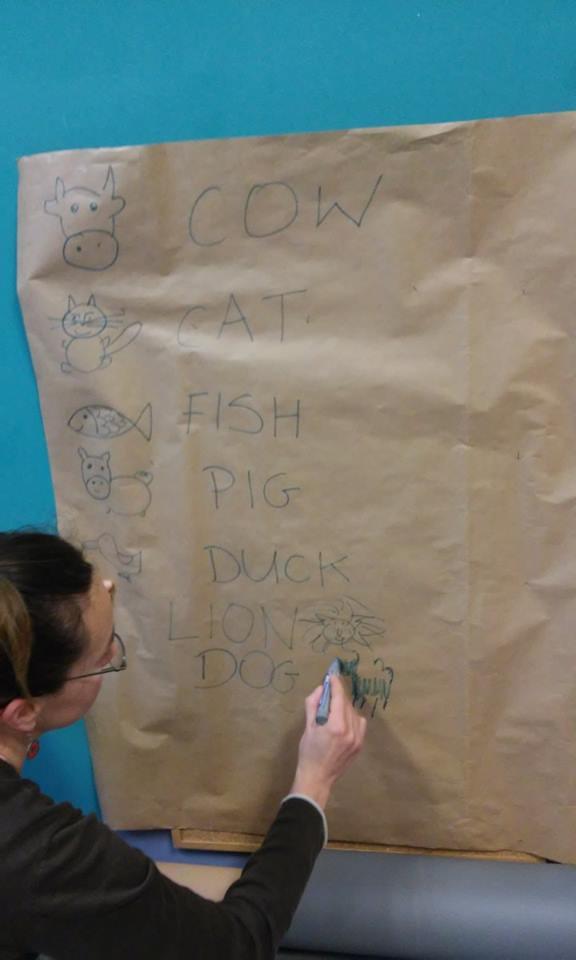 COW
CAT
FISH
PIG
DUCK
LION
DOG